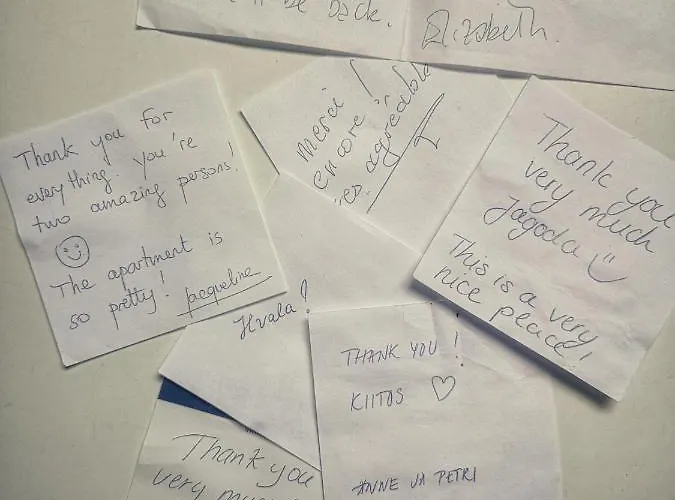 be back.
Elizabeth.
merci !
encore
agréable
Thank you for
everything. You're
two amazing persons!
The apartment is
so pretty!
Jacqueline
Thank you
very much
Jagoda
This is a very
nice pleace!
Hvala!
THANK YOU !
KIITOS
ANNE JA PETRI
Thank you
very